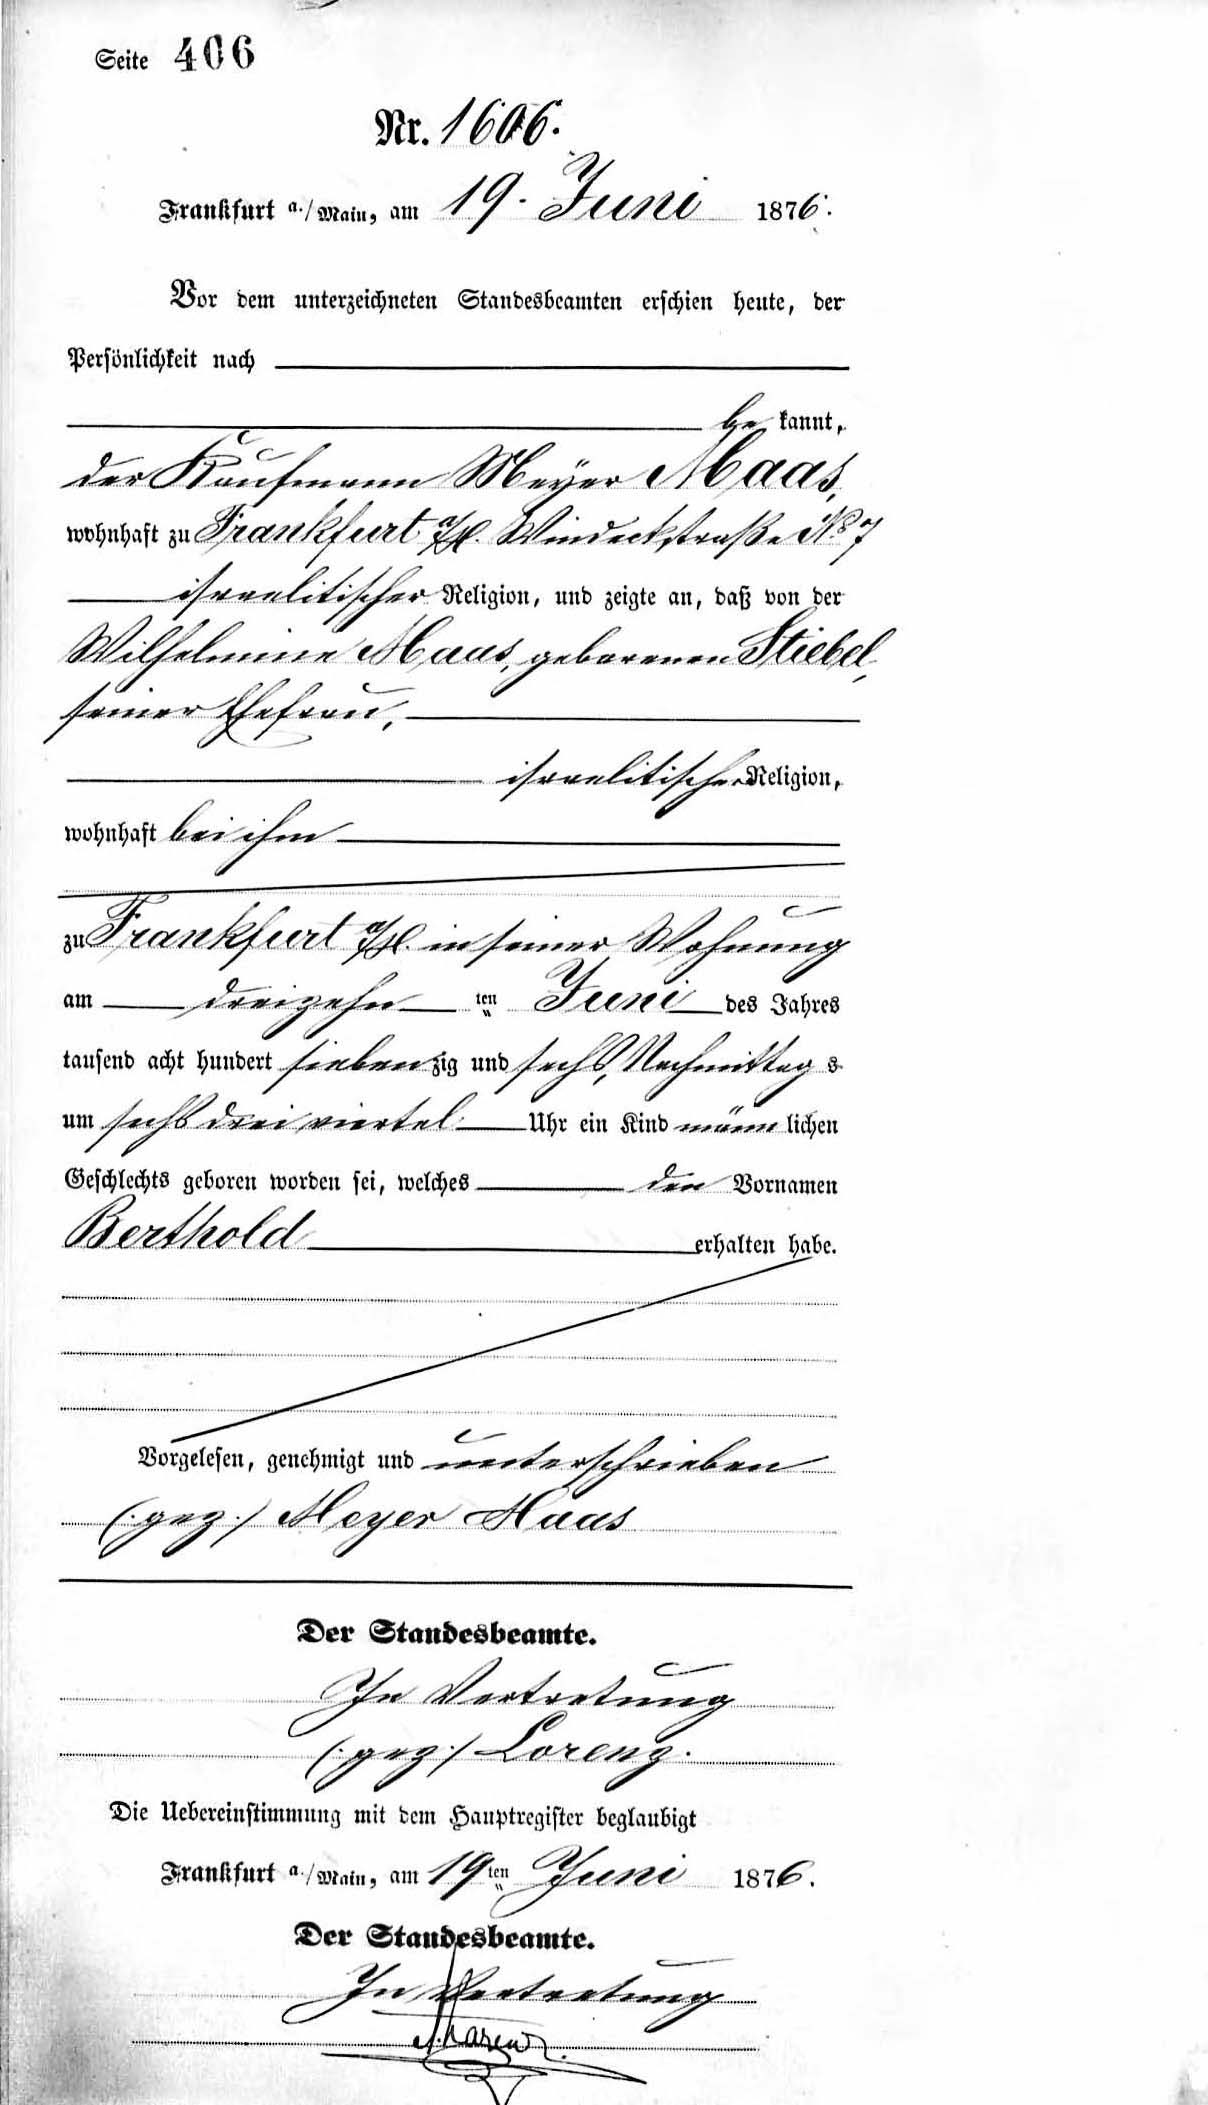 Seite 406
Nr. 1606.
Frankfurt a./Main, am 19. Juni 1876.
Vor dem unterzeichneten Standesbeamten erschien heute, der
Persönlichkeit nach
be kannt,
der Kaufmann Meyer Maas,
wohnhaft zu Frankfurt a/M. Windeckstraße No 7
israelitischer Religion, und zeigte an, daß von der
Wilhelmine Maas, geborenen Stiebel,
seiner Ehefrau,
israelitischer Religion,
wohnhaft bei ihm
zu Frankfurt a/M. in seiner Wohnung
am dreizehn ten Juni des Jahres
tausend acht hundert sieben zig und sechs, Nachmittag s
um sechs drei viertel Uhr ein Kind männ lichen
Geschlechts geboren worden sei, welches den Vornamen
Berthold erhalten habe.
Vorgelesen, genehmigt und unterschrieben
(:gez:) Meyer Maas
Der Standesbeamte.
In Vertretung
(:gez:) Lorenz.
Die Uebereinstimmung mit dem Hauptregister beglaubigt
Frankfurt a./Main, am 19ten Juni 1876.
Der Standesbeamte.
In Vertretung